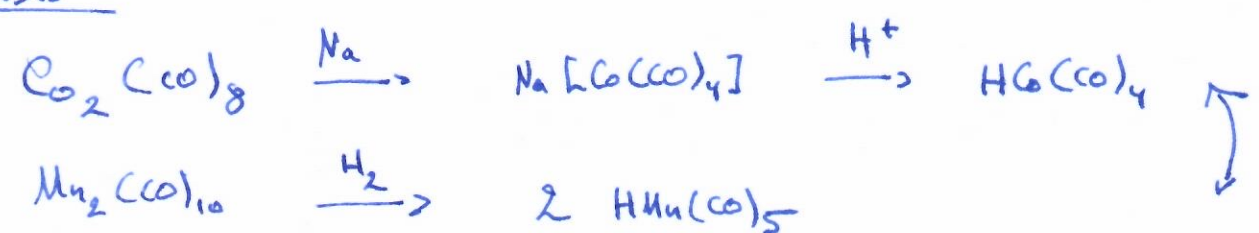 Co₂(CO)₈ —Na→ Na[Co(CO)₄] —H⁺→ HCo(CO)₄
Mn₂(CO)₁₀ —H₂→ 2 HMn(CO)₅